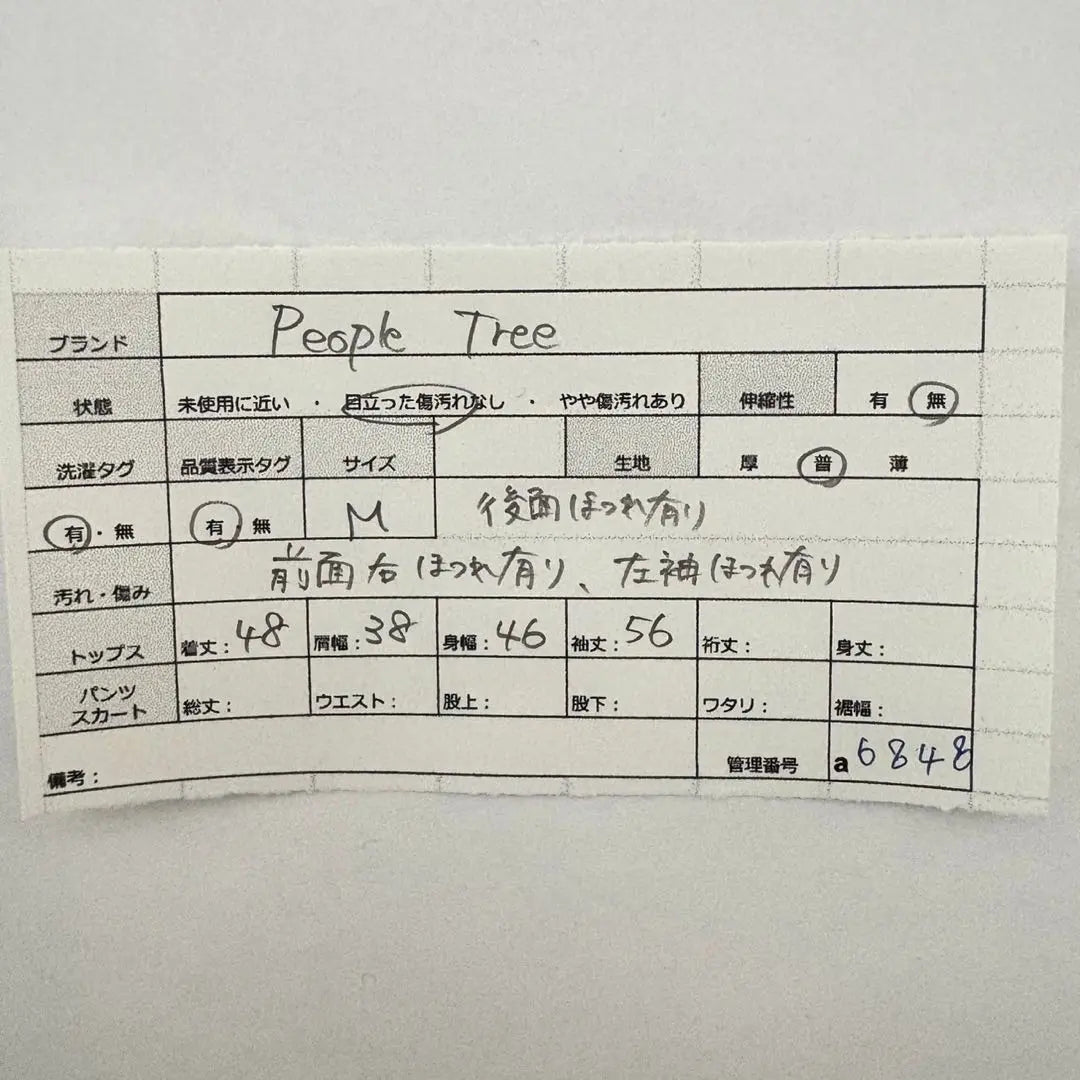 ブランド People Tree
状態 未使用に近い ・ 目立った傷汚れなし ・ やや傷汚れあり 伸縮性 有 無
洗濯タグ 品質表示タグ サイズ 生地 厚 普 薄
有・無 有・無 M 後面ほつれ有り
汚れ・傷み 前面右ほつれ有り、左袖ほつれ有り
トップス 着丈:48 肩幅:38 身幅:46 袖丈:56 裄丈: 身丈:
パンツ
スカート 総丈: ウエスト: 股上: 股下: ワタリ: 裾幅:
備考: 管理番号 a6848